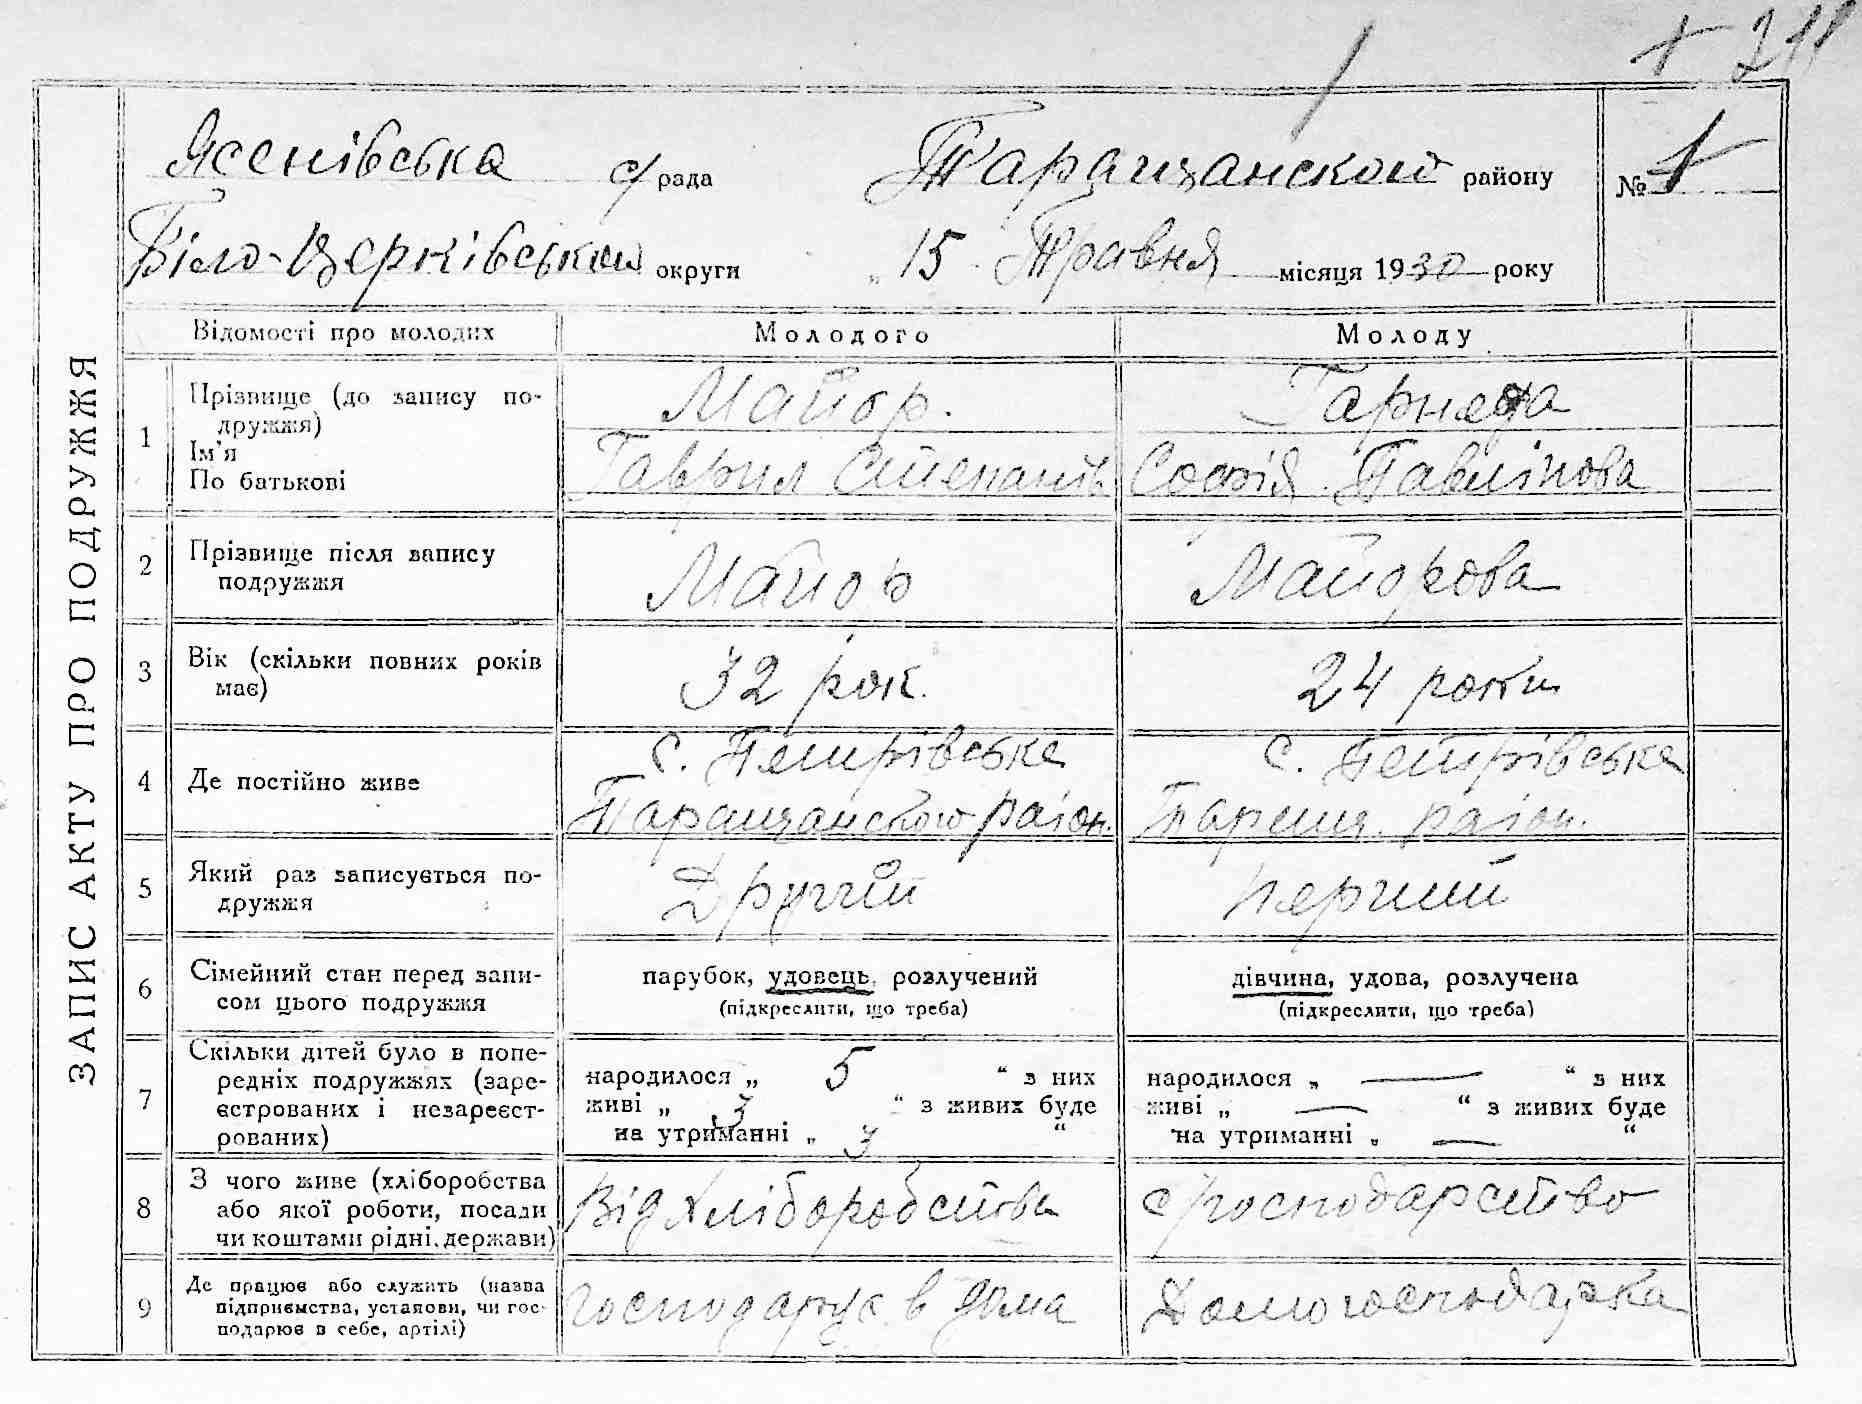 1 + 711
Ясенівська с/рада Таращанської району № 1
Біло-Церківської округи „ 15 Травня місяця 1930 року
ЗАПИС АКТУ ПРО ПОДРУЖЖЯ
Відомості про молодих Молодого Молоду
1 Прізвище (до запису по-
дружжя)
Ім'я
По батькові
Майор.
Гаврил Степанів
Софія Павлінова
2 Прізвище після запису
подружжя
Майор Майорова
3 Вік (скільки повних років
має)
32 рок. 24 роки
4 Де постійно живе
с. Петрівське
Таращанского район.
с. Петрівське
Таращ. район.
5 Який раз записується по-
дружжя
Другій Перший
6 Сімейний стан перед запи-
сом цього подружжя
парубок, удовець, розлучений
(підкреслити, що треба)
дівчина, удова, розлучена
(підкреслити, що треба)
7 Скільки дітей було в попе-
редніх подружжях (заре-
єстрованих і незареєст-
рованих)
народилося „ 5 “ з них
живі „ 3 “ з живих буде
на утриманні „ 3 “
народилося „ — “ з них
живі „ — “ з живих буде
на утриманні „ — “
8 З чого живе (хліборобства
або якої роботи, посади
чи коштами рідні, держави)
Від хліборобства с/господарство
9 Де працює або служить (назва
підприємства, установи, чи гос-
подарює в себе, артілі)
господарює в дома Домогосподарка